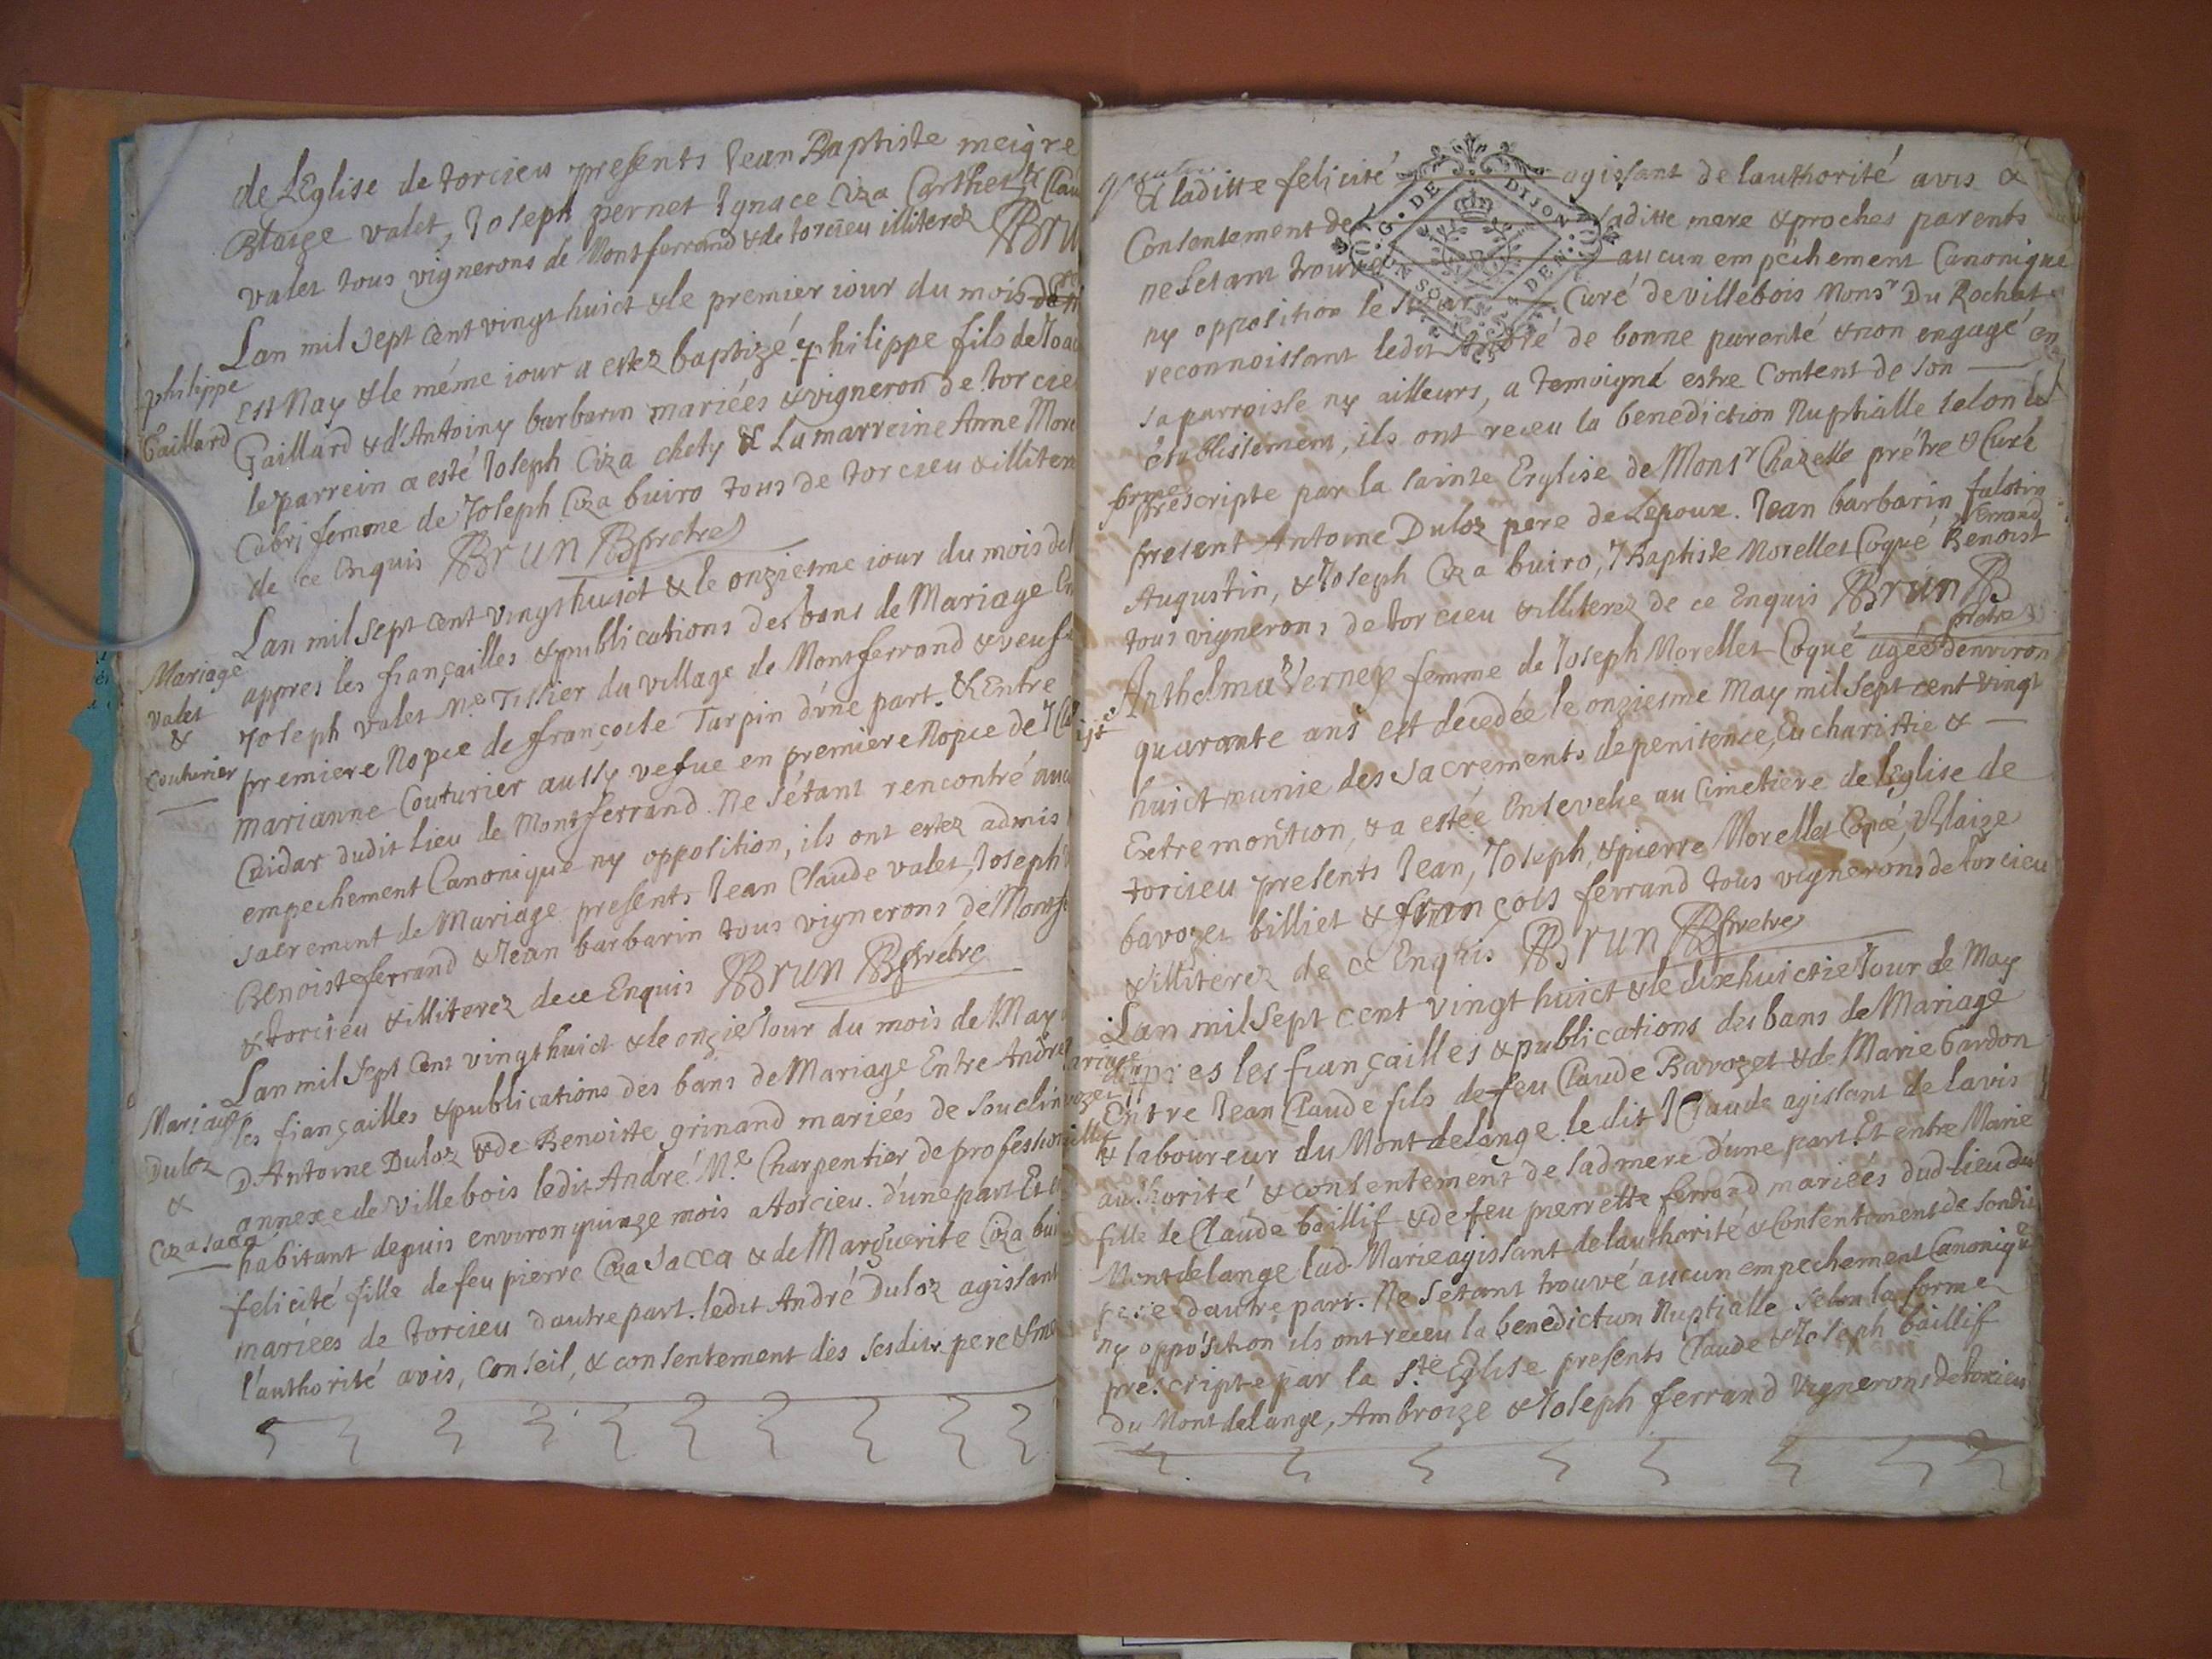 de L'Eglise de torcieu presents Jean Baptiste meigre
Blaize valet, Joseph pernet Ignace Ciza Carthet & Clau
valet tous vignerons de Montferrand & de torcieu illiterez Bru
Lan mil sept cent vingt huict & le premier iour du mois de
philippe
Gaillard
est Nay & le méme iour a estez baptizé philippe fils de Joac
Gaillard & d'Antoiny barbarin mariées & vigneron de torcie
le parrein a esté Joseph Ciza chety & La marreine Anne More
Cabri femme de Joseph Ciza buiro tous de torcieu & illiterez
de ce Enquis Brun prètre
Lan mil sept cent vingt huict & le onziesme iour du mois de
Mariage
valet
&
couturier
appres les françailles & publications des bans de Mariage En
Joseph valet Me Tissier du village de Montferrand & veuf
premiere Nopce de françoise Turpin d'vne part. & Entre
marianne Couturier aussy vefue en premiere Nopce de J Cl
Cridar dudit Lieu de Montferrand. Ne s'étant rencontré auc
empechement Canonique ny opposition, ils ont estez admis
sacrement de Mariage presents Jean Claude valet, Joseph
Benoist ferrand & Jean barbarin tous vignerons de Montfe
& torcieu & illiterez de ce Enquis Brun prétre
Lan mil sept Cent vingt huict & le onzie Jour du mois de May
Mariage
Duloz
&
Ciza sacca
les fiançailles & publications des bans de Mariage Entre André
D'Antoine Duloz & de Benoiste grinand mariées de Souclin
annexe de Villebois ledit André Me. Charpentier de profession
habitant depuis environ quinze mois a torcieu. d'une part Et
felicité fille de feu pierre Ciza Sacca & de Marguerite Ciza bui
mariées de torcieu d'autre part. ledit André Duloz agissant
l'authorité avis, Conseil, & consentement des sesdits pere & me
& laditte felicité agissant de lauthorité avis &
Consentement de saditte mere & proches parents
ne setant trouvé aucun empéchement Canonique
ny opposition le Sieur Curé de villebois Monsr Du Rochat
reconnoissant ledit André de bonne parenté & non engagé en
sa parroisse ny ailleurs, a temoigné estre Content de son
établissement, ils ont receu la benediction Nuptialle selon la
forme prescripte par la sainte Erglise de Monsr Chazelle prétre & Curé
present Antoine Duloz pere de Lepoux. Jean barbarin falotin
Augustin, & Joseph Ciza buiro, J Baptiste Morellet Coqué Benoist
ferrand
tous vignerons de torcieu & illiterez de ce Enquis Brun
prétre
Anthelma Verney femme de Joseph Morellet Coqué agée denviron
quarante ans est decedée le onziesme May mil sept cent vingt
huict munie des sacrements de penitence, Eucharistie &
Extremontion, & a estée Ensevelie au Cimetiere de l'Eglise de
torcieu presents Jean, Joseph, & pierre Morellet Coqué, Blaize
bavozet billiet & françois ferrand tous vignerons de torcieu
& illiterez de ce Enquis Brun prétre
Lan mil sept cent vingt huict & le dixhuictie Jour de May
appres les fiançailles & publications des bans de Mariage
Entre Jean Claude fils de feu Claude Bavozet & de Marie bardon
& laboureur du Mont delange le dit J Claude agissant de lavis
authorité & consentement de sadmere d'une part. Et entre Marie
fille de Claude baillif & de feu pierrette ferrand mariées dud lieu du
Mont delange lad. Marie agissant de lauthorité & Consentement de sondit
pere dautre part. Ne Setant trouvé aucun empechement Canonique
ny opposition ils ont receu la benediction Nuptialle selon la forme
prescripte par la Ste Eglise presents Claude & Joseph baillif
Du Mont delange, Ambroize & Joseph ferrand vignerons de torcieu
G. DE DIJON